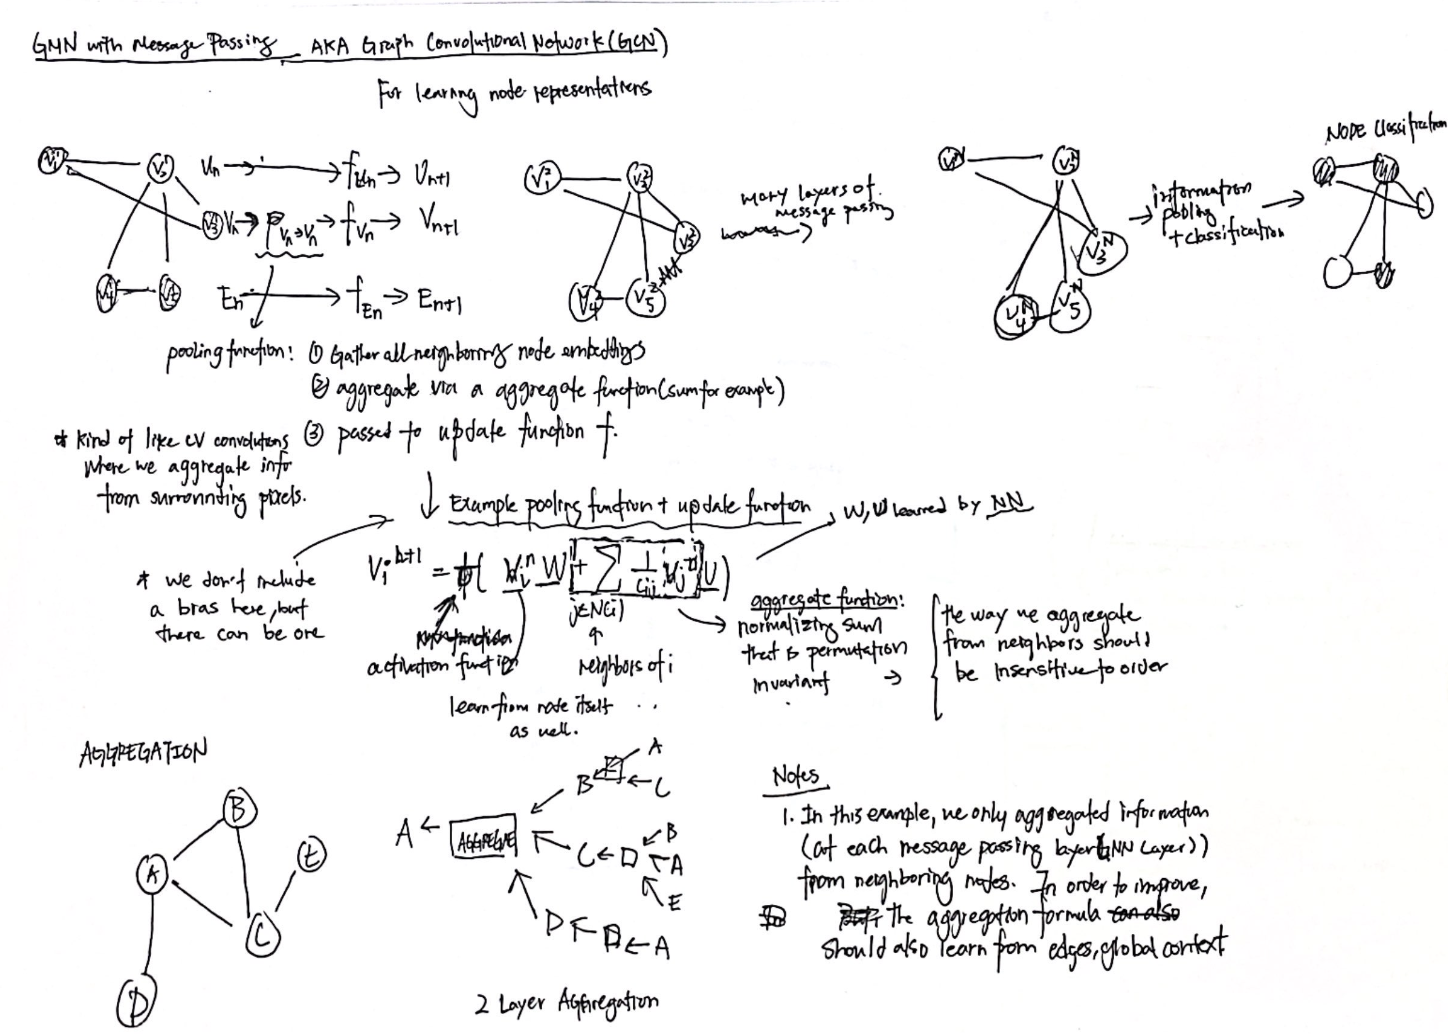 GNN with Message Passing AKA Graph Convolutional Network (GCN)
For learning node representations
NODE Classification
Un → fUn → Un+1
Vn → PVn→Vn → fVn → Vn+1
En → fEn → En+1
many layers of
message passing
information
pooling
+ classification
pooling function: ① Gather all neighboring node embeddings
② aggregate via a aggregate function (sum for example)
③ passed to update function f.
* kind of like CV convolutions
where we aggregate info
from surrounding pixels.
Example pooling function + update function
W, U learned by NN
* we don't include
a bias here, but
there can be one
activation function
neighbors of i
learn from node itself
as well.
aggregate function:
normalizing sum
that is permutation
invariant →
the way we aggregate
from neighbors should
be insensitive to order
AGGREGATION
A
B
C
D
E
A ← AGGREGATE
B ← A
← C
C ← B
A
E
D ← A
2 Layer Aggregation
Notes
1. In this example, we only aggregated information
(at each message passing layer (GNN Layer))
from neighboring nodes. In order to improve,
the aggregation formula can also
should also learn from edges, global context